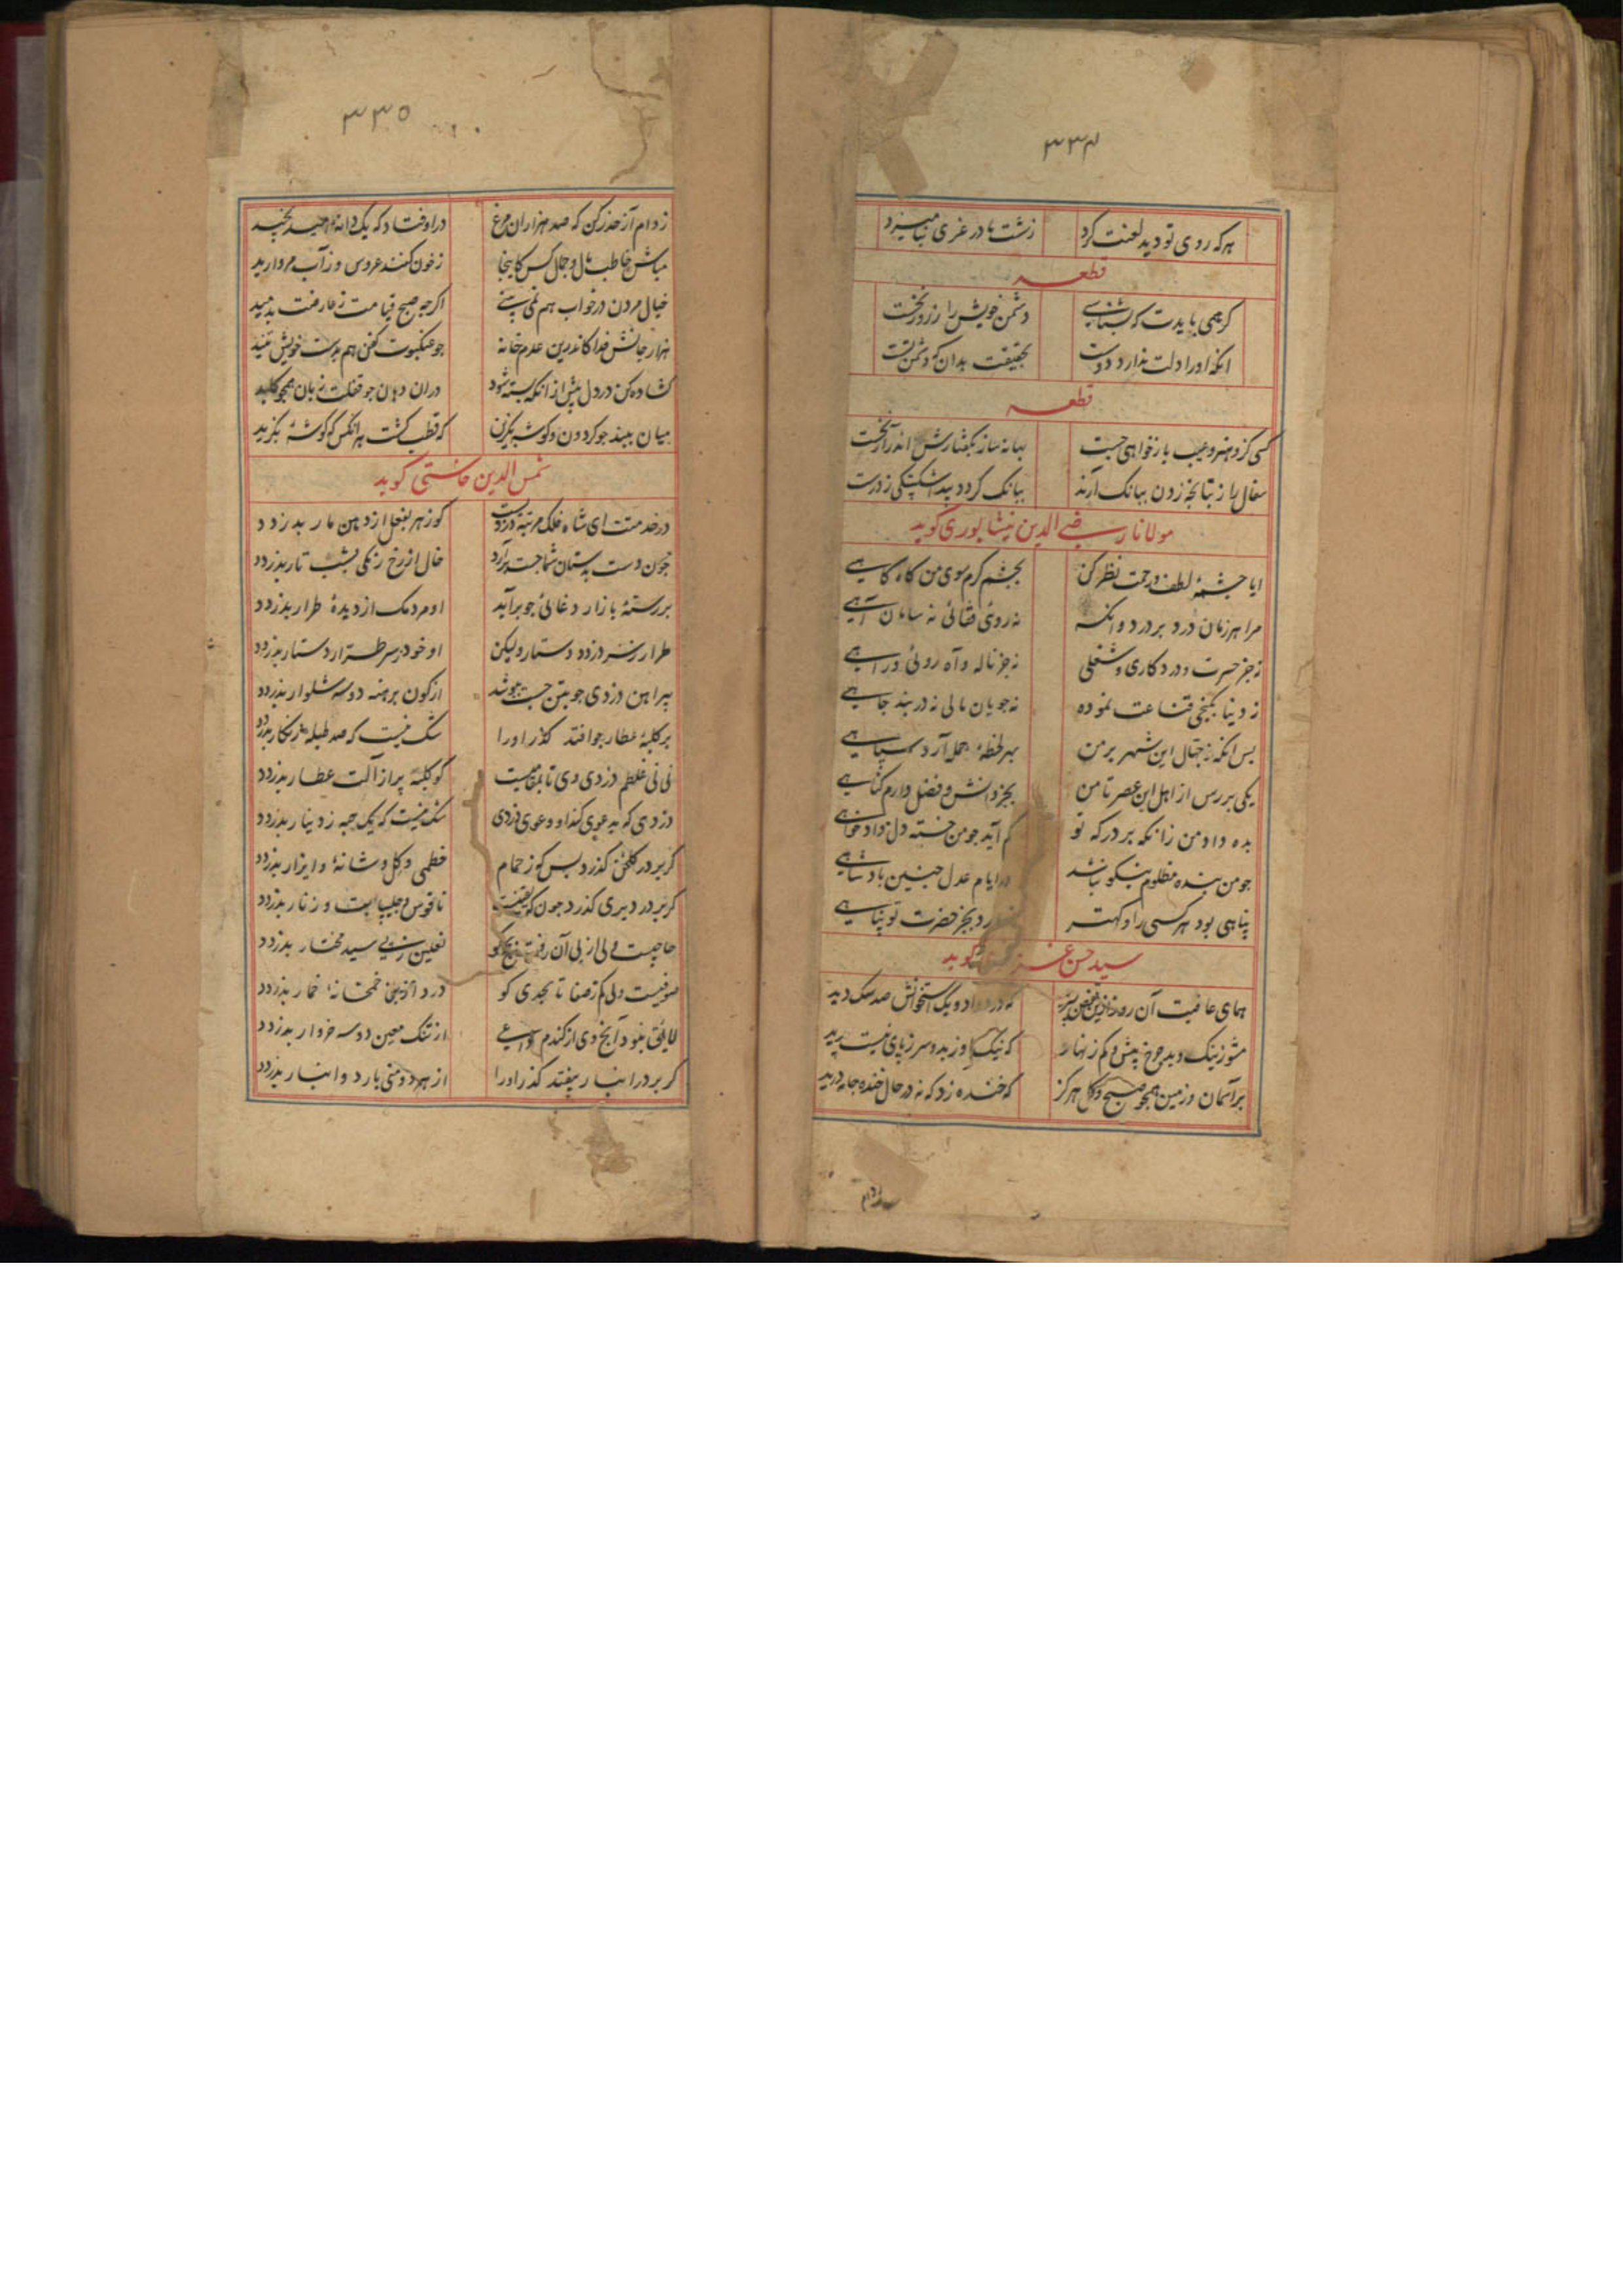 ۳۳۴
هر که روی تو دید لعنت کرد زشت مادر غری نیامیزد
قطعه
گر همی بایدت که بشناسی دشمن خویش را ز روز نخست
انکه اورا دلت ندارد دوست بحقیقت بدان که دشمن تست
قطعه
کسی کزو هنر و عیب بازخواهی جست بهانه ساز بگفتارش اندر آر نخست
سفال را ز تبانجه زدن ببانک آرند ببانک کردد بیدا شکستکی ز درست
مولانا رضی الدین نیشابوری کوید
ایا جشمهٔ لطف و رحمت نظر کن بجشم کرم سوی من کاه کاهی
مرا هر زمان درد بر درد وانکه نه روی فغانی نه سامان آهی
نه جز حسرت و درد کاری و شغلی نه جز ناله و آه روئی و راهی
ز دینا بکنجی قناعت نموده نه جویان مالی نه دربند جاهی
بس انکه ز جهال این شهر بر من بهر لحظهٔ جهل آرد سپاهی
یکی بررس از اهل این عصر تا من بجز دانش و فضل دارم کناهی
بده داد من زانکه بر درکه تو کم آید جو من خسته دل دادخواهی
جو من بنده مظلوم نیکو نباشد در ایام عدل جنین بادشاهی
پناهی بود هر کسی را و کهتر ندارد بجز حضرت تو پناهی
سید حسن غزنوی کوید
همای عافیت آن روز ازین قفص ببرید که در دو یک استخوانش صد سک دید
مشو ز نیک و بد جرخ بیش و کم زنهار که نیک او ز بد و سر ز پای نیست پدید
بر آسمان و زمین همجو صبح و کل هرکز که خنده زد که نه در حال خنده جامه درید
زدام
۳۳۵
ز دام آز حذر کن که صد هزاران مرغ در اوفتاد که یک دانه مراد نجید
مباش خاطب مال و جمال کس کاینجا ز خون کنند عروس و ز آب مروارید
خیال مردن در خواب هم نمی بینی اکرجه صبح قیامت ز عارضت بدمید
هزار جانش فدا کاندرین عدم خانه جو عنکبوت کفن هم بدست خویش تنید
کشاده کن در دل بیش از انکه بسته شود در ان دهان جو قفلت زبان همجو کلید
میان ببند جو کردون و کوشه بکزین که قطب کشت هر انکس که کوشهٔ بکزید
شمس الدین خاستی کوید
در خدمتت ای شاه فلک مرتبه دزدیست کو زهر بفعل از دهن مار بدزدد
جون دست بدستان شما جست برآرد خال از رخ زنکی بشب تار بدزدد
بر رستهٔ بازار دغائی جو برآید او مردمک از دیدهٔ طرار بدزدد
طرار ز سر دزدد دستار و لیکن او خود سر طرار و دستار بدزدد
پیراهن دزدی جو بتن جست بپوشد از کون برهنه دو سه شلوار بدزدد
بر کلبهٔ عطار جو افتد کذر اورا شک نیست که صد طبله بیکبار بدزدد
نی نی غلطم دزدی وی تا بمقامیست کو کلبه پر از آلت عطار بدزدد
دزدی که بدعوی کند او دعوی دزدی شک نیست که یک حبه ز دینار بدزدد
کر بر در کلخن کذرد بس کو ز حمام خطمی و کل و شانه و ایزار بدزدد
کر بر در دیری کذرد جون که یقینست ناقوس و جلیپا و بت و زنار بدزدد
حاجیست ولی از پی آن رفت بحج کو نعلین ز پی سید مختار بدزدد
صوفیست ولی کم ز صفا تا بجدی کو درد از بن خمخانهٔ خمار بدزدد
لایق نبود آنج وی از کندم از تنک معین دو سه خروار بدزدد
کر بر در انبار بیفتد کذر اورا از بهر دو منی بار دو انبار بدزدد